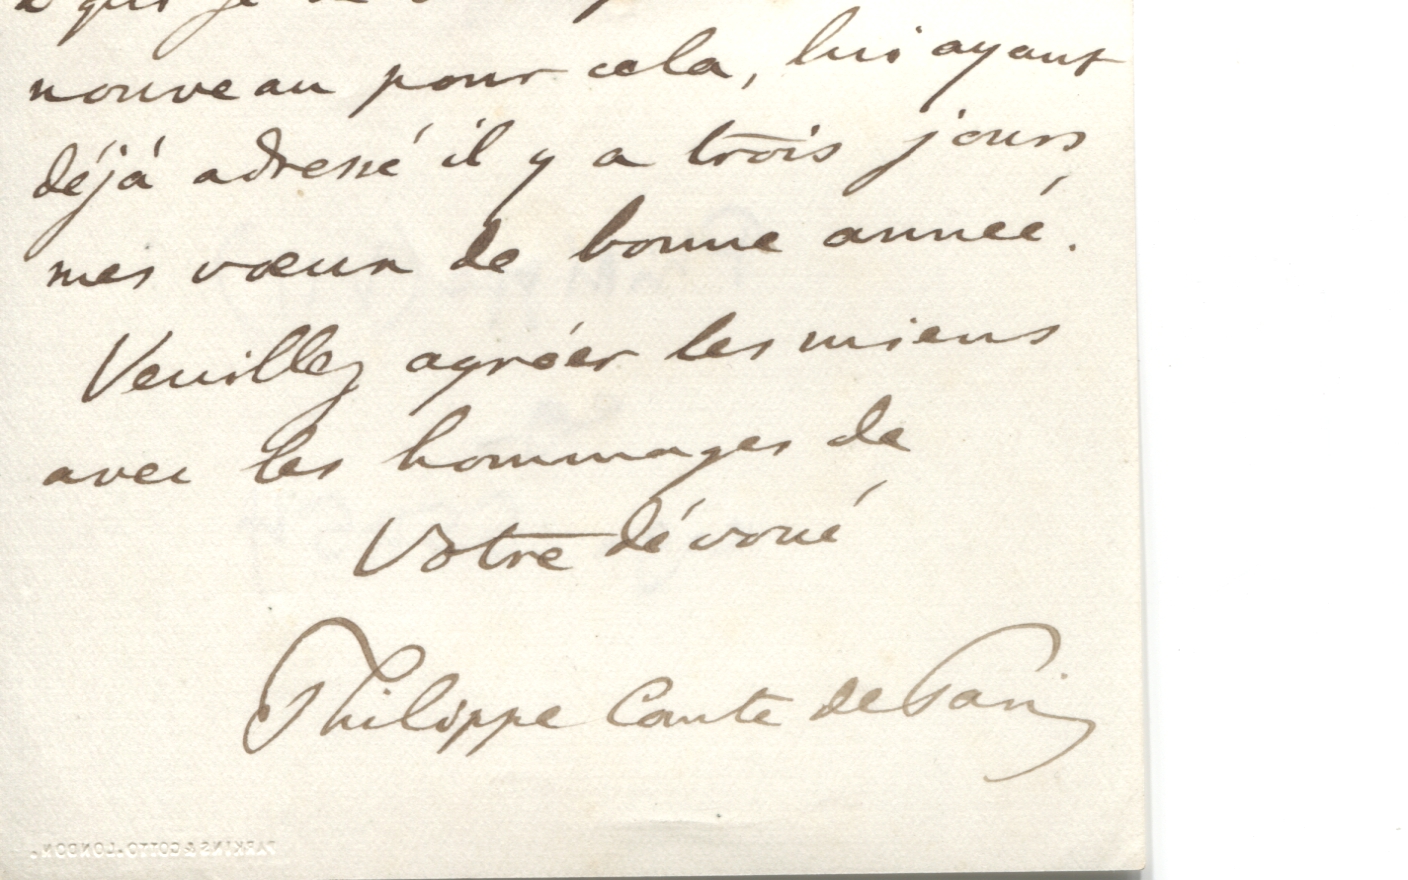 que je
nouveau pour cela, lui ayant
déjà adressé il y a trois jours
mes vœux de bonne année.
Veuillez agréer les miens
avec les hommages de
Votre dévoué
Philippe Comte de Paris
PARKINS & GOTTO. LONDON.